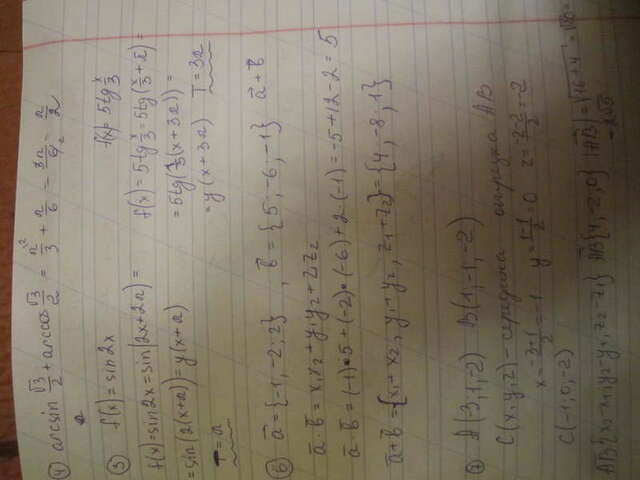 ④ arcsin √3/2 + arccos √3/2 = π/3 + π/6 = 3π/6 = π/2
⑤ f(x) = sin2x
f(x) = sin2x = sin(2x+2π) =
= sin(2(x+π)) = y(x+π)
T = π
f(x) = 5tg x/3
f(x) = 5tg x/3 = 5tg(x/3 + π) =
= 5tg(1/3(x+3π)) =
= y(x+3π) T = 3π
⑥ a = {-1, -2, 2} , b = {5; -6; -1} a + b
a · b = x₁x₂ + y₁y₂ + z₁z₂
a · b = (-1) · 5 + (-2) · (-6) + 2 · (-1) = -5 + 12 - 2 = 5
a + b = {x₁ + x₂, y₁ + y₂, z₁ + z₂} = {4, -8; 1}
⑦ A(-3, 1, -2) B(1, -1, -2)
C(x, y, z) - середина отрезка AB
x = -3+1/2 = -1 y = 1-1/2 = 0 z = -2-2/2 = -2
C(-1, 0, -2)
AB{x₂-x₁, y₂-y₁, z₂-z₁} AB{4, -2, 0} |AB| = √16+4 = √20 =
= 2√5